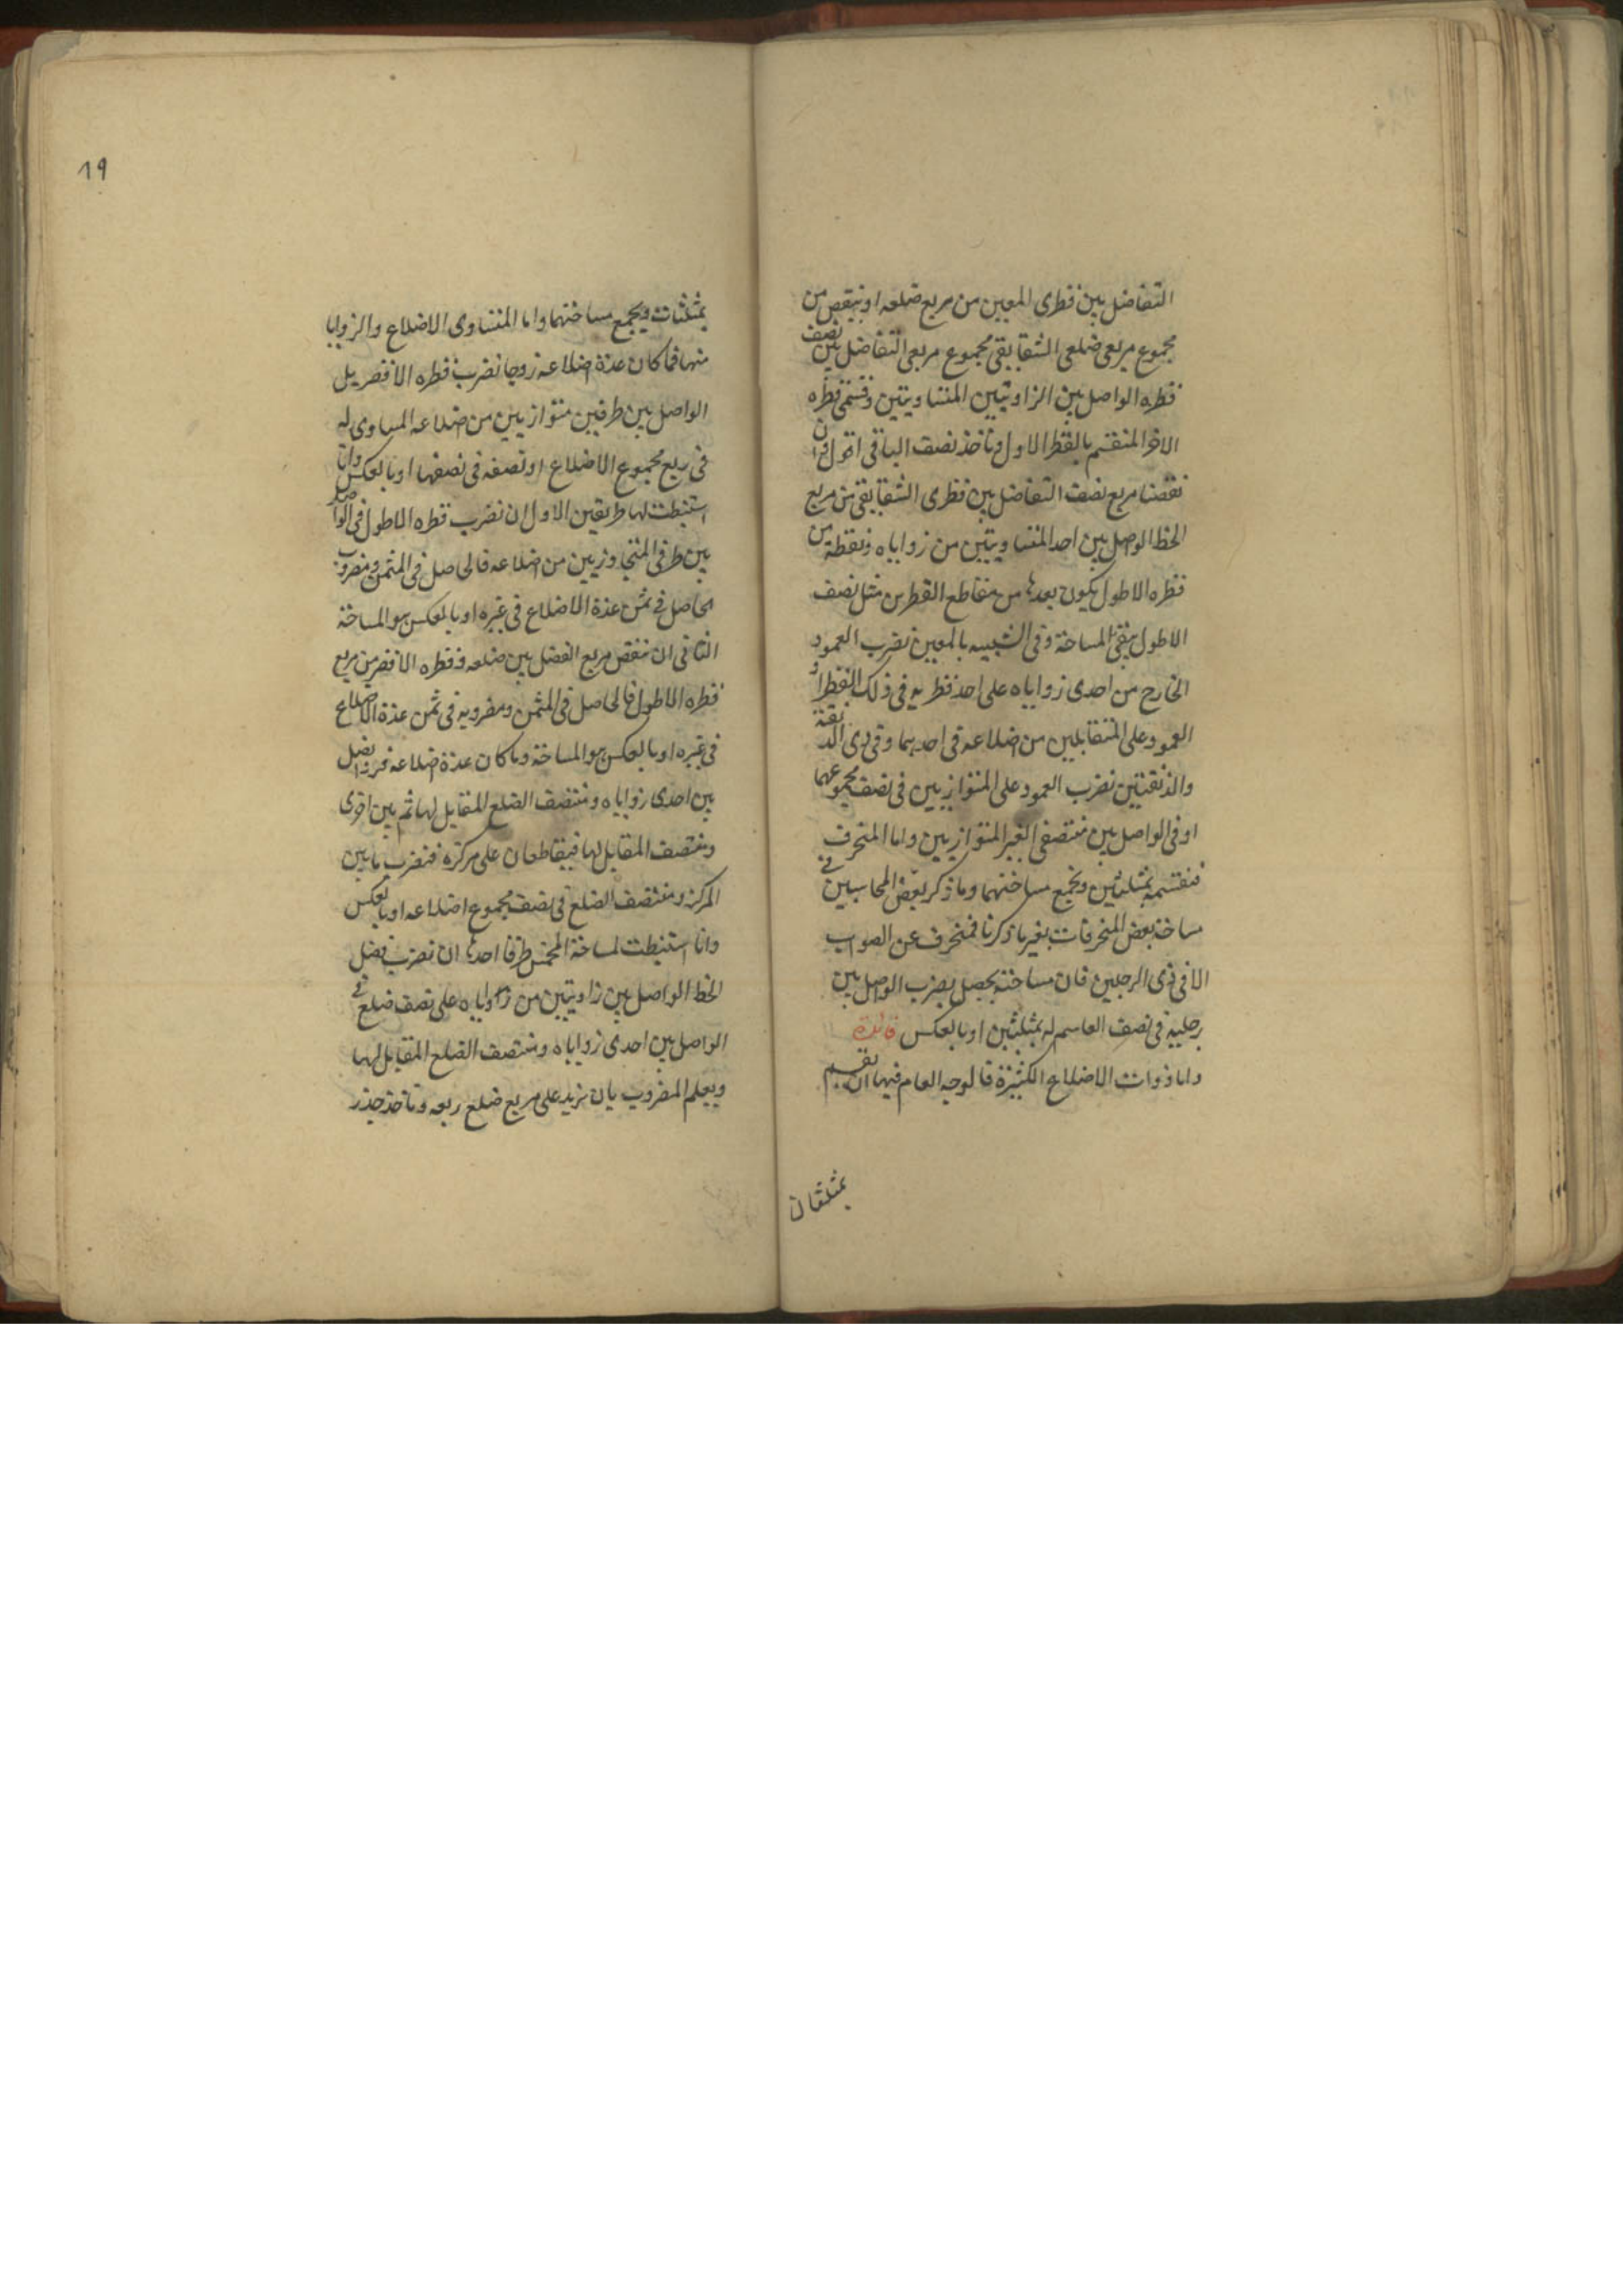 التفاضل بين قطرى المعين من مربع ضلعه او ننقص من
مجموع مربعى ضلعى الشقايقى مجموع مربعى التفاضل بين نصف
قطره الواصل بين الزاويتين المتساويتين وقسمى قطره
الاخر المنقسم بالقطر الاول وناخذ نصف الباقى اقول وان
نقصنا مربع نصف التفاضل بين قطرى الشقايقى من مربع
الخط الواصل بين احد المتساويتين من زواياه ونقطة من
قطره الاطول يكون بعدها من مقاطع القطرين مثل نصف
الاطول يبقى المساحة وفى الشبيه بالمعين نضرب العمود
الخارج من احدى زواياه على احد قطريه فى ذلك القطر او
العمود على المتقابلين من اضلاعه فى احدهما وفى ذى الذنقة
والذنقتين نضرب العمود على المتوازيين فى نصف مجموعهما
او فى الواصل بين منتصفى الغير المتوازيين واما المنحرف
فنقسمه بمثلثين ونجمع مساحتهما وما ذكر بعض المحاسبين فى
مساحة بعض المنحرفات بغير ما ذكرنا فمنحرف عن الصواب
الا فى ذى الرجلين فان مساحته يحصل بضرب الواصل بين
رجليه فى نصف القاسم له بمثلثين او بالعكس فائدة
واما ذوات الاضلاع الكثيرة فالوجه العام فيها ان نقسم
بمثلثات
19
بمثلثات ويجمع مساحتهما واما المتساوى الاضلاع والزوايا
منها فما كان عدة اضلاعه زوجا نضرب قطره الاقصر بل
الواصل بين طرفين متوازيين من اضلاعه المساوى له
فى ربع مجموع الاضلاع او نصفه فى نصفها او بالعكس وانا
استنبطت لها طريقين الاول ان نضرب قطره الاطول فى الواصل
بين طرفى المتجاوزيين من اضلاعه فالحاصل فى المثمن ومضروب
الحاصل فى ثمن عدة الاضلاع فى غيره او بالعكس هو المساحة
الثانى ان ننقص مربع الفضل بين ضلعه وقطره الاقصر من مربع
قطره الاطول فالحاصل فى المثمن ومضروبه فى ثمن عدة الاضلاع
فى غيره او بالعكس هو المساحة وما كان عدة اضلاعه فردا نصل
بين احدى زواياه ومنتصف الضلع المقابل لها ثم بين اخرى
ومنتصف المقابل لها فيتقاطعان على مركزه فنضرب ما بين
المركز ومنتصف الضلع فى نصف مجموع اضلاعه او بالعكس
وانا استنبطت لمساحة المخمس طرقا احدها ان نضرب فضل
الخط الواصل بين زاويتين من زواياه على نصف ضلع فى
الواصل بين احدى زواياه ومنتصف الضلع المقابل لها
ويعلم المضروب بان نزيد على مربع ضلع ربعه وناخذ جذر